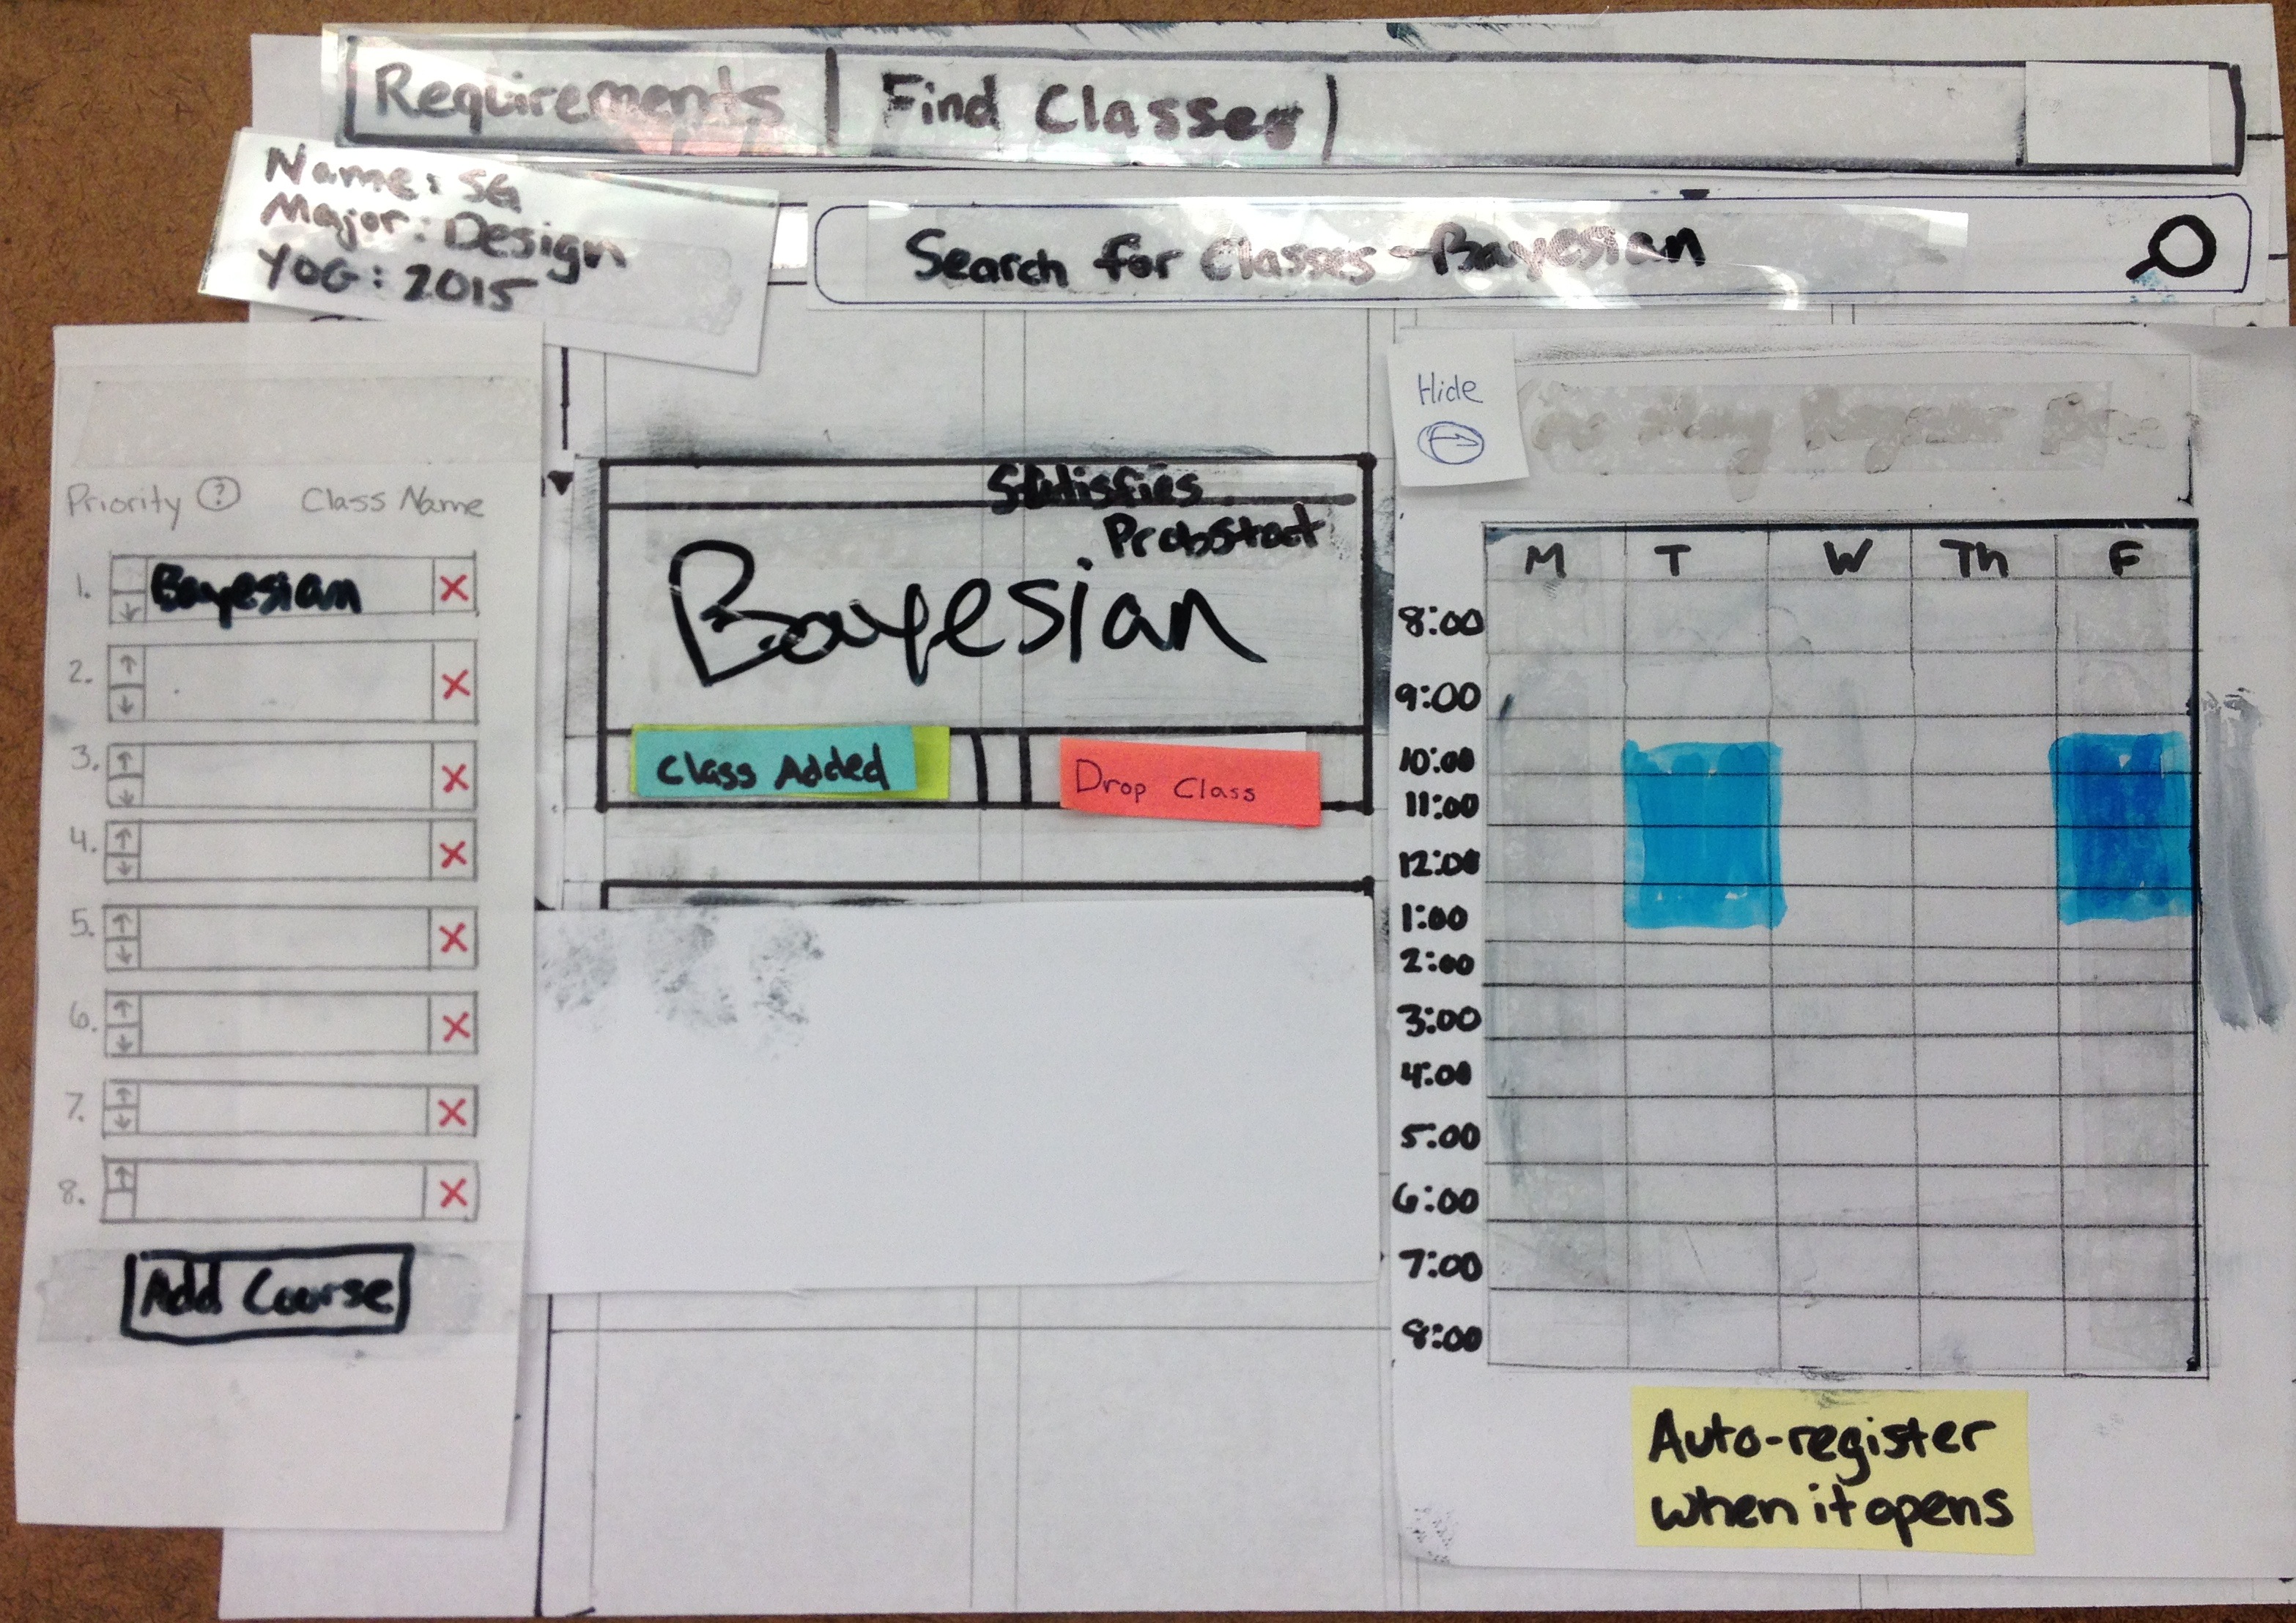 Requirements | Find Classes |
Name: SG
Major: Design
YOG: 2015
Search for Classes - Bayesian
Hide
Priority ? Class Name
1. Bayesian X
2. X
3. X
4. X
5. X
6. X
7. X
8. X
Add Course
Satisfies
Probstat
Bayesian
Class Added
Drop Class
M T W Th F
8:00
9:00
10:00
11:00
12:00
1:00
2:00
3:00
4:00
5:00
6:00
7:00
8:00
Auto-register
when it opens